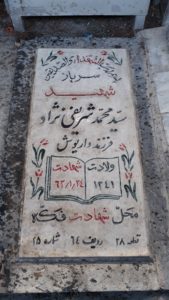 سرباز
شهید
سید محمد شریفی نژاد
فرزند داریوش
ولادت
۱۳۴۱
شهادت
۶۲/۱/۲۴
محل شهادت فکه
قطعه ۲۸ ردیف ۶۴ شماره ۱۵